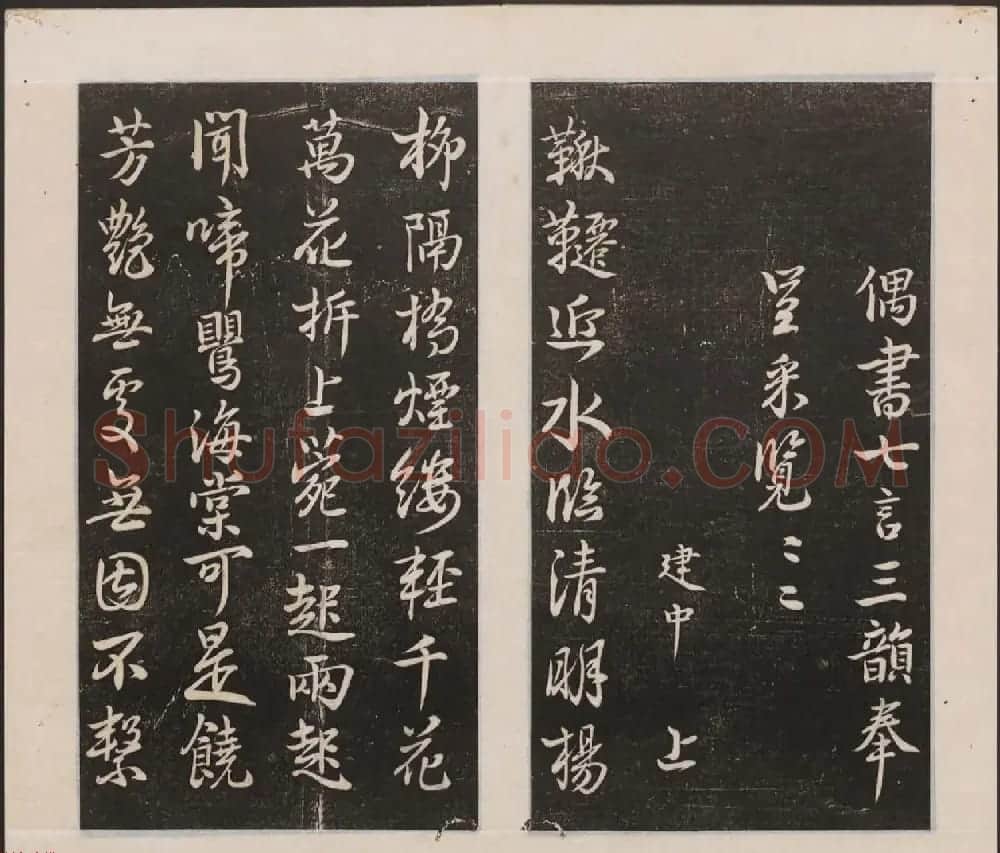 偶書七言三韻奉
呈采覽〻〻
建中 上
鞦韆近水臨清明楊
柳隔橋煙縷輕千花
萬花拆上苑一起兩起
聞啼鸎海棠可是饒
芳艷無處無因不繫
Shufaziliao.COM